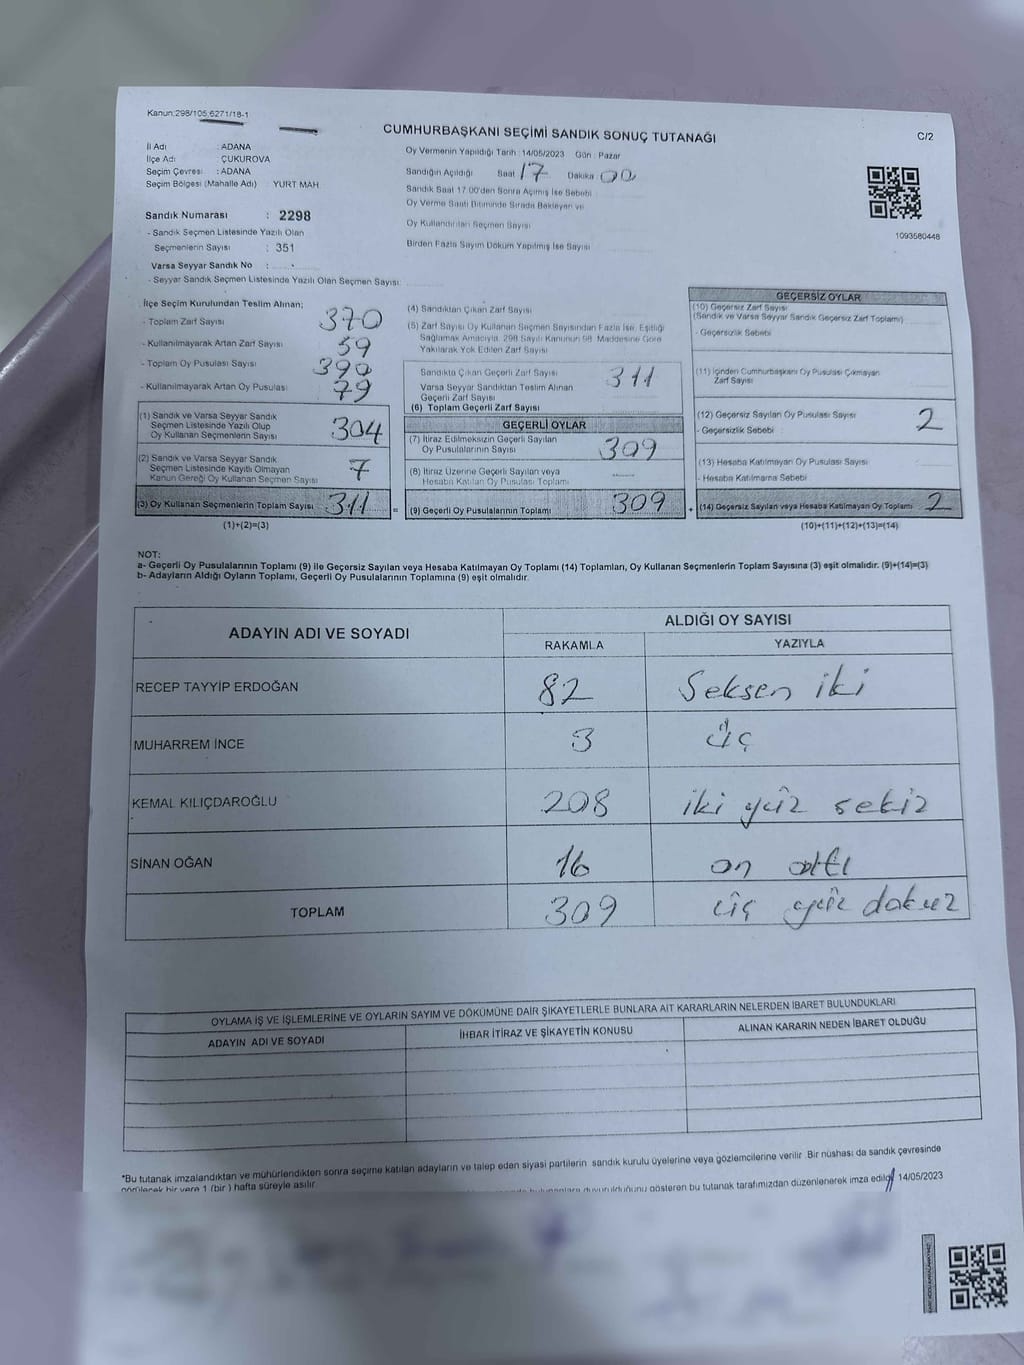 Kanun:298/105;6271/18-1
CUMHURBAŞKANI SEÇİMİ SANDIK SONUÇ TUTANAĞI
C/2
İl Adı : ADANA
İlçe Adı : ÇUKUROVA
Seçim Çevresi : ADANA
Seçim Bölgesi (Mahalle Adı) : YURT MAH
Oy Vermenin Yapıldığı Tarih : 14/05/2023 Gün : Pazar
Sandığın Açıldığı Saat 17 Dakika 00
Sandık Saat 17:00'den Sonra Açımış İse Sebebi
Oy Verme Saati Bitiminde Sırada Bekleyen ve
Oy Kullandırılan Seçmen Sayısı
Birden Fazla Sayım Döküm Yapılmış İse Sayısı
1093580448
Sandık Numarası : 2298
- Sandık Seçmen Listesinde Yazılı Olan
Seçmenlerin Sayısı : 351
Varsa Seyyar Sandık No : -
- Seyyar Sandık Seçmen Listesinde Yazılı Olan Seçmen Sayısı:
İlçe Seçim Kurulundan Teslim Alınan;
- Toplam Zarf Sayısı 370
- Kullanılmayarak Artan Zarf Sayısı 59
- Toplam Oy Pusulası Sayısı 390
- Kullanılmayarak Artan Oy Pusulası 79
(1) Sandık ve Varsa Seyyar Sandık
Seçmen Listesinde Yazılı Olup
Oy Kullanan Seçmenlerin Sayısı 304
(2) Sandık ve Varsa Seyyar Sandık
Seçmen Listesinde Kayıtlı Olmayan
Kanun Gereği Oy Kullanan Seçmen Sayısı 7
(3) Oy Kullanan Seçmenlerin Toplam Sayısı 311 =
(1)+(2)=(3)
(4) Sandıktan Çıkan Zarf Sayısı
(5) Zarf Sayısı Oy Kullanan Seçmen Sayısından Fazla İse, Eşitliği
Sağlamak Amacıyla, 298 Sayılı Kanunun 98. Maddesine Göre
Yakılarak Yok Edilen Zarf Sayısı
Sandıkta Çıkan Geçerli Zarf Sayısı 311
Varsa Seyyar Sandıktan Teslim Alınan
Geçerli Zarf Sayısı
(6) Toplam Geçerli Zarf Sayısı
GEÇERLİ OYLAR
(7) İtiraz Edilmeksizin Geçerli Sayılan
Oy Pusulalarının Sayısı 309
(8) İtiraz Üzerine Geçerli Sayılan veya
Hesaba Katılan Oy Pusulası Toplamı
(9) Geçerli Oy Pusulalarının Toplamı 309 +
GEÇERSİZ OYLAR
(10) Geçersiz Zarf Sayısı
(Sandık ve Varsa Seyyar Sandık Geçersiz Zarf Toplamı)
- Geçersizlik Sebebi
(11) İçinden Cumhurbaşkanı Oy Pusulası Çıkmayan
Zarf Sayısı
(12) Geçersiz Sayılan Oy Pusulası Sayısı 2
- Geçersizlik Sebebi :
(13) Hesaba Katılmayan Oy Pusulası Sayısı
- Hesaba Katılmama Sebebi
(14) Geçersiz Sayılan veya Hesaba Katılmayan Oy Toplamı 2
(10)+(11)+(12)+(13)=(14)
NOT:
a- Geçerli Oy Pusulalarının Toplamı (9) ile Geçersiz Sayılan veya Hesaba Katılmayan Oy Toplamı (14) Toplamları, Oy Kullanan Seçmenlerin Toplam Sayısına (3) eşit olmalıdır. (9)+(14)=(3)
b- Adayların Aldığı Oyların Toplamı, Geçerli Oy Pusulalarının Toplamına (9) eşit olmalıdır.
ADAYIN ADI VE SOYADI
ALDIĞI OY SAYISI
RAKAMLA YAZIYLA
RECEP TAYYİP ERDOĞAN 82 Seksen iki
MUHARREM İNCE 3 üç
KEMAL KILIÇDAROĞLU 208 iki yüz sekiz
SİNAN OĞAN 16 on altı
TOPLAM 309 üç yüz dokuz
OYLAMA İŞ VE İŞLEMLERİNE VE OYLARIN SAYIM VE DÖKÜMÜNE DAİR ŞİKAYETLERLE BUNLARA AİT KARARLARIN NELERDEN İBARET BULUNDUKLARI
ADAYIN ADI VE SOYADI
İHBAR İTİRAZ VE ŞİKAYETİN KONUSU
ALINAN KARARIN NEDEN İBARET OLDUĞU
*Bu tutanak imzalandıktan ve mühürlendikten sonra seçime katılan adayların ve talep eden siyasi partilerin sandık kurulu üyelerine veya gözlemcilerine verilir. Bir nüshası da sandık çevresinde
görülecek bir yere 1 (bir) hafta süreyle asılır. duyurulduğunu gösteren bu tutanak tarafımızdan düzenlenerek imza edildi 14/05/2023